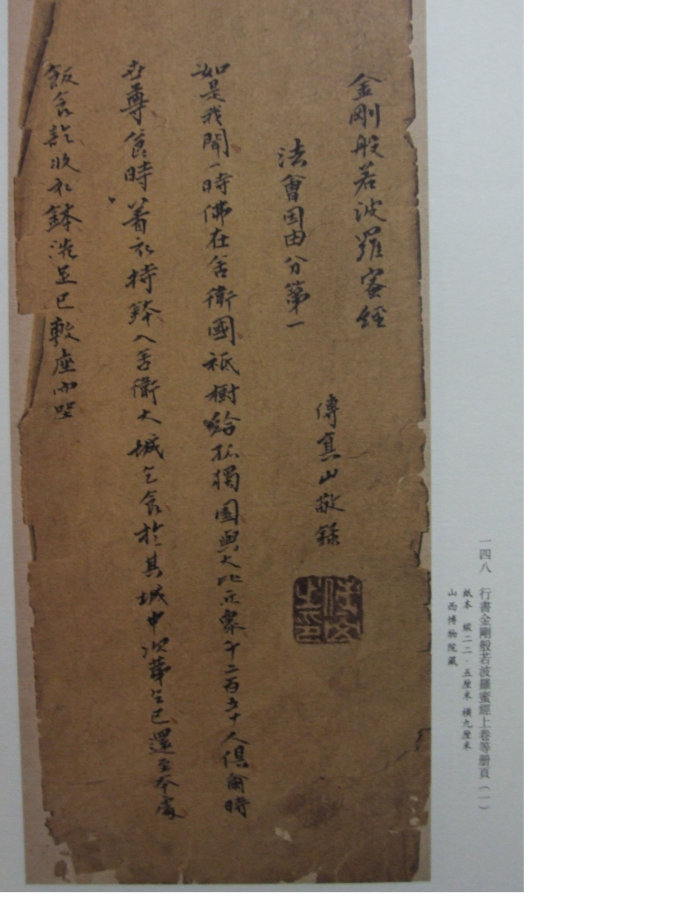 一四八 行書金剛般若波羅蜜經上卷等册頁（一）
紙本 縱二二·五厘米 橫九厘米
山西博物院藏
金剛般若波羅蜜經
傅真山敬錄
法會因由分第一
如是我聞一時佛在舍衛國祇樹給孤獨園與大比丘眾千二百五十人俱爾時
世尊食時著衣持鉢入舍衛大城乞食於其城中次第乞已還至本處
飯食訖收衣鉢洗足已敷座而坐